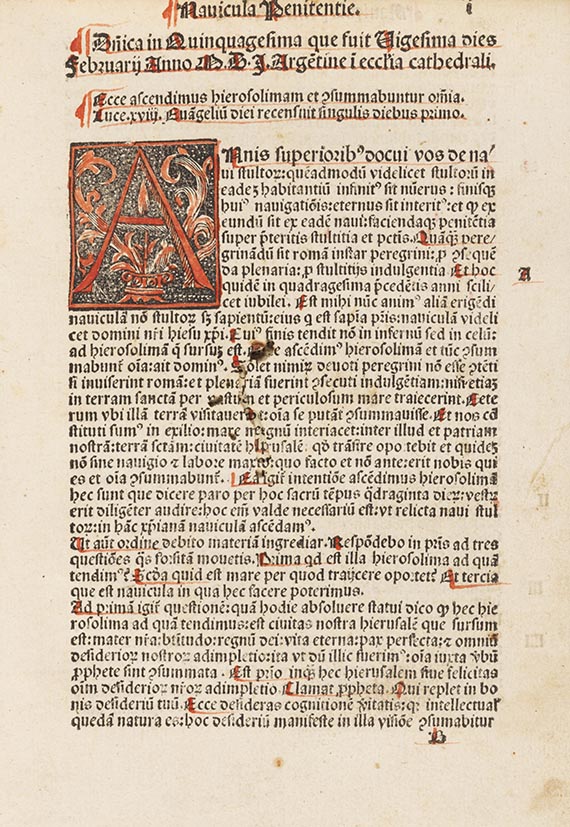 Nauicula Penitentie. i
Dn̄ica in Quinquagesima que fuit Uigesima dies
Februarij Anno M.D.J. Argētine ī eccl̄ia cathedrali.
Ecce ascendimus hierosolimam et ꝯsummabuntur om̄ia.
Luce.xviij. Euāgeliū diei recensuit singulis diebus primo.
ANnis superiorib⁹ docui vos de na/
ui stultoꝝ: quēadmodū videlicet stultoꝝ in
eadē habitantiū infinit⁹ sit nūerus: finisqꝫ
hui⁹ nauigatiōis: eternus sit interit⁹: et ꝙ ex
eundū sit ex eadē naui: faciendaqꝫ penitētia
super p̄teritis stultitia et petis. Quāqꝫ pere/
grinādū sit romā instar peregrini: ꝓ ꝯsequē
da plenaria: ꝓ stultitijs indulgentia Et hoc
quidem in quadragesima p̄cedētis anni scili/
cet iubilei. Est mihi nūc anim⁹ aliā erigēdi
nauiculā nō stultoꝝ sꝫ sapientū: eius q̄ est sapīa pr̄is: nauiculā videli
cet domini nr̄i hiesu xp̄i. Cui⁹ finis tendit nō in infernū sed in celū:
ad hierosolimā q̄ sursuꝫ est. ascēdim⁹ hierosolimam et tūc ꝯsum
mabunt̄ oīa: ait domin⁹. Solet nimiꝝ deuoti peregrini nō esse ꝯtēti
si inuiserint romā: et plenariā fuerint ꝯsecuti indulgētiam: nisi etiaꝫ
in terram sanctā per vastum et periculosum mare traiecerint. Cete
rum vbi illā terrā visitauerūt: oīa se putāt ꝯsummauisse. Et nos cō
stituti sum⁹ in exilio: mare magnū interiacet: inter illud et patriam
nostrā: terrā sctām: ciuitatē hierusalē. qd̄ trāsire oportebit et quideꝫ
nō sine nauigio ⁊ labore maximo: quo facto et nō ante: erit nobis qui
es et oīa ꝯsummabunt̄. Ea igit̄ intentiōe ascēdimus hierosolimā
hec sunt que dicere paro per hoc sacrū tēpus q̄draginta dieꝝ: vestꝝ
erit diligēter audire: hoc em̄ valde necessariū est: vt relicta naui stul
toꝝ: in hāc xp̄ianā nauiculā ascēdam⁹.
Ut aūt ordine debito materiā ingrediar. Respōdebo in pr̄is ad tres
questiōes q̄s forsitā mouetis. Prima qd̄ est illa hierosolima ad quā
tendim⁹? Scd̄a quid est mare per quod traijcere oportet? Et tercia
que est nauicula in qua hec sacere poterimus.
Ad primā igit̄ questionē: quā hodie absoluere statui dico ꝙ hec hie
rosolima ad quā tendimus: est ciuitas nostra hierusalē que sursum
est: mater nr̄a: btītudo: regnū dei: vita eterna: pax perfecta: ⁊ omniū
desiderioꝝ nostroꝝ adimpletio: ita vt dū illic fuerim⁹: oīa iuxta v̄bū
ꝓphete sint ꝯsummata. Est prīo inqꝫ hec hierusalem siue felicitas
oīm desiderioꝝ nr̄oꝝ adimpletio Clamat ꝓpheta. Qui replet in bo
nis desideriū tuū. Ecce desideras cognitionē v̄itatis: qꝛ intellectual̓
quedā natura es: hoc desideriū manifeste in illa visiōe ꝯsumabitur
A
B